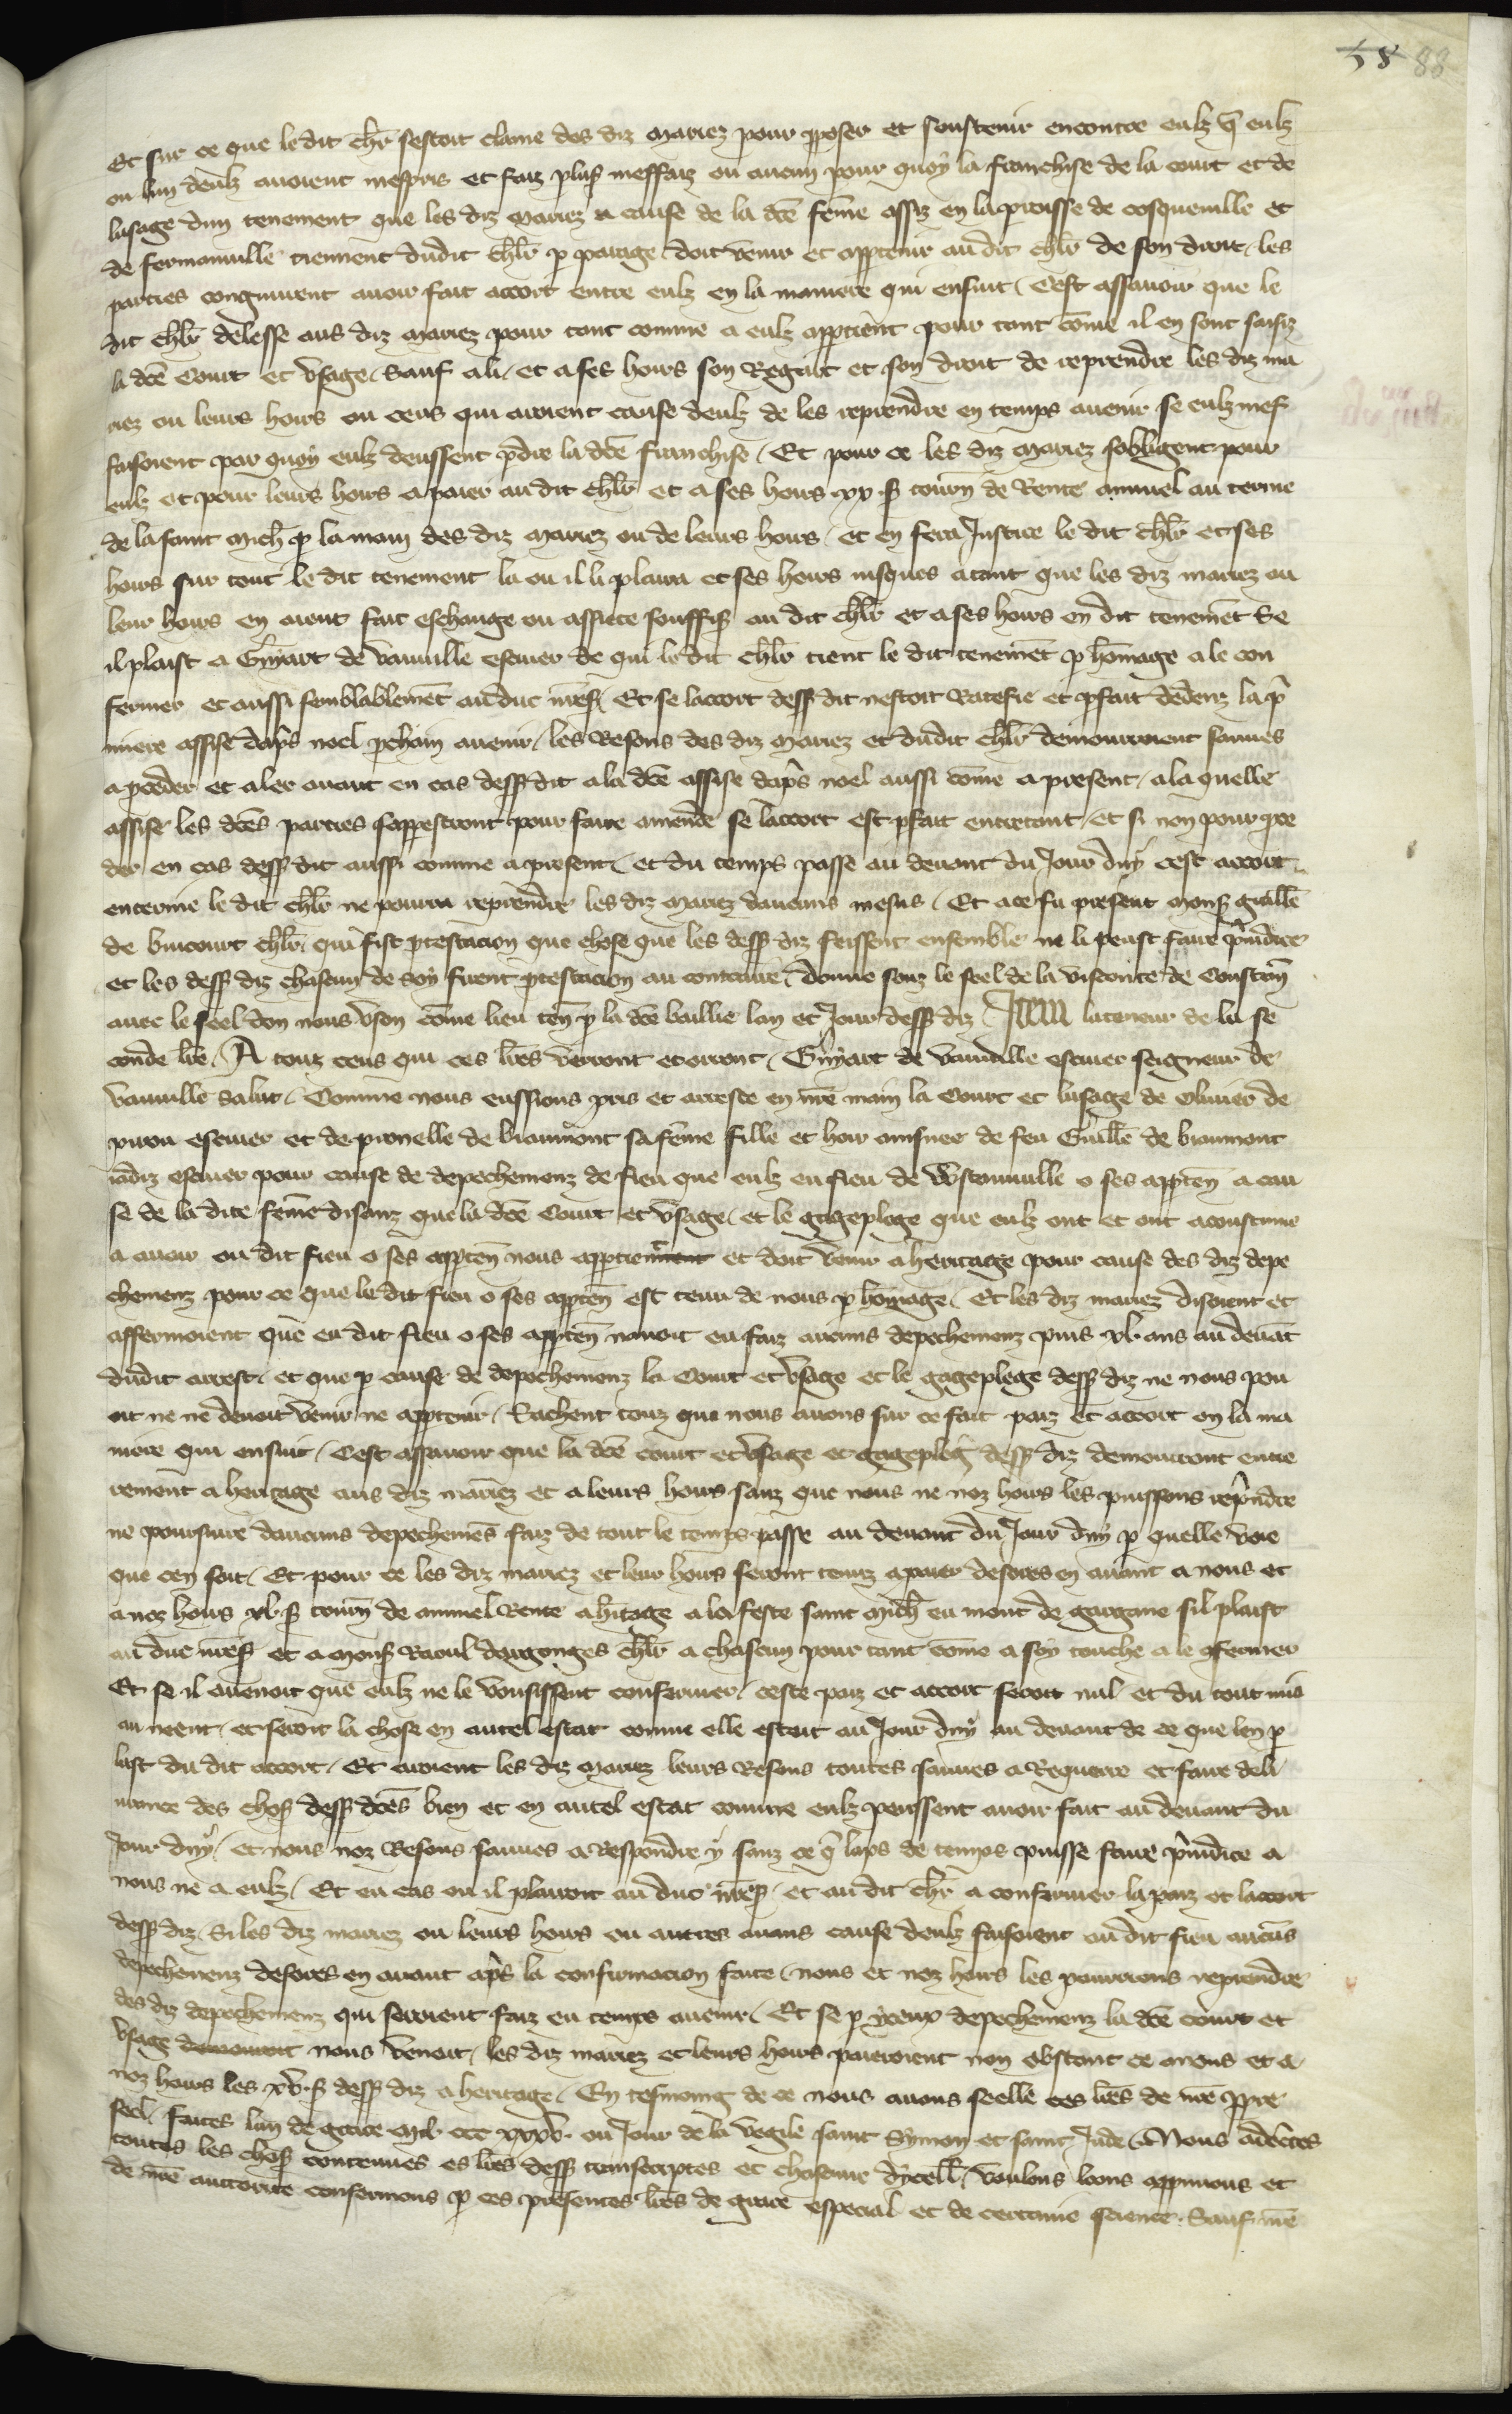 58 88
Et sur ce que le dit chlr sestoit clame des diz mariez pour pposer et soustenir encontre eulz q̃ eulz
ou lun deulz auoient mespris et faiz plus̃ meffaiz ou aucun pour quoy la franchise de la court et de
lusage dun tenement que les diz mariez a cause de la dcẽ fẽme assiz en la proisse de cosqueuille et
de fermanuille tiennent dudit chlr p parage doit venir et apptenir au dit chlr de son droit / les
parties congnurent auoir fait acort entre eulz en la maniere qui ensuit / Cest assauoir que le
dit chlr delesse aus diz mariez pour tant comme a eulz apptient pour tant cõme il en sont saisiz
la dcẽ Court et vsage / Sauf a li / et a ses hoirs son Regart et son droit de reprendre les diz ma
riez ou leurs hoirs ou ceus qui auroient cause deulz de les reprendre en temps auenir se eulz mef
faisoient par quoy eulz deussent pdre la dcẽ franchise / Et pour ce les diz mariez sobligent pour
eulz et pour leurs hoirs a paier au dit chlr et a ses hoirs xx s̃ tourñ de Rente annuel au terme
de la saint Mich̃ p la main des diz mariez ou de leurs hoirs / et en fera Justice le dit chlr et ses
hoirs sur tout le dit tenement la ou il li plaira et ses hoirs iusques a tant que les diz mariez ou
leur hoirs en aient fait eschange ou assiete souffis̃ au dit chlr et a ses hoirs en dit tenemẽt Se
il plaist a Guĩart de vauuille escuier de qui le dit chlr tient le dit tenemẽt p hõmage a le con
fermer et aussi semblablemẽt au duc nres̃ / Et se lacort dess̃ dit nestoit Ratefie et pfait dedenz la p̃
miere assise dap̃s noel pchain auenir / les Resons des diz mariez et dudit chlr demourroient sauues
a pceder et aler auant en cas dess̃ dit a la dcẽ assise dap̃s noel aussi cõme a present / a la quelle
assise les dcẽs parties sapperront pour faire amende se lacort est pfait entretant / et si non pour pce
der en cas dess̃ dit aussi comme a present / et du temps passe au deuant du Jour duy cest acort
enterine le dit chlr ne pourra reprendre les diz mariez daucuns mesus / Et a ce fu present mons̃ guillẽ
de briicourt chlr qui fist ptestacion que chose que les dess̃ diz feissent ensemble ne li peust faire p̃iudice
et les dess̃ diz chascun de soy firent ptestacion au contraire / donne souz le seel de la viconte de Constanc̃
auec le seel don nous vson cõme lieu teñ p la dcẽ baillie lan et Jour dess̃ diz / Item la teneur de la se
conde lr̃e / A touz ceus qui ces lr̃es verront et orront / Guĩart de vauuille escuier seigneur de
vauuille Salut / Comme nous eussions pris et arreste en nr̃e main la Court et lusage de Oliuier de
pirou escuier et de pronelle de biaumont sa fẽme fille et hoir ainsnee de feu Guillẽ de biaumont
iadiz escuier pour cause de depechemenz de fieu que eulz en fieu de vrastauuille o ses appteñ a cau
se de la dite fẽme disanz que la dcẽ Court et vsage / et le gageplege que eulz ont et ont acoustume
a auoir ou dit fieu o ses appteñ nous apptient et doit venir a heritage pour cause des diz depe
chemenz pour ce que le dit fieu o ses appteñ est tenu de nous p hõmage / Et les diz mariez disoient et
affermoient que en dit fieu o ses appteñ nauoit eu faiz aucuns depechemenz puis xl ans au deuãt
dudit arrest / et que p cause de depechemenz la Court et vsage et le gageplege dess̃ diz ne nous pou
oit ne ne deuoit venir ne apptenir / Sachent touz que nous auons sur ce fait paiz et acort en la ma
niere qui ensuit / Cest assauoir que la dcẽ court et vsage et gagepleg̃ dess̃ diz demourront entie
rement a heritage aus diz mariez et a leurs hoirs sanz que nous ne noz hoirs les puissons rep̃ndre
ne poursuire daucuns depechemẽs faiz de tout le temps passe au deuant du Jour duy p quelle voie
que cen soit / Et pour ce les diz mariez et leur hoirs seront tenuz a paier desores en auant a nous et
a noz hoirs xl s̃ tourñ de annuel Rente a hitage a la feste saint mich̃ en mont de gargane sil plaist
au duc nres̃ et a mons̃ Raoul dargonges chlr a chascun pour tant cõme a soy touche a le gfermer
Et se il auenoit que eulz ne le vousissent confermer / ceste paiz et acort seroit nul et du tout mis
au neent / et seroit la chose en autel estat comme elle estoit au Jour duy au deuant de ce que len p
last du dit acort / Et auroient les diz mariez leurs Resons toutes sauues a Requerre et faire deli
urance des chos̃ dess̃ dcẽs bien et en autel estat comme eulz peussent auoir fait au deuant du
Jour duy / et nous noz Resons sauues a Respondre y sanz ce q̃ laps de temps puisse faire p̃iudice a
nous ne a eulz / Et en cas ou il plairoit au duc nres̃ / et au dit chlr a confermer la paiz et lacort
dess̃ diz / Si les diz mariez ou leurs hoirs ou autres aians cause deulz faisoient en dit fieu aucũs
depechemenz desores en auant ap̃s la confirmacion faite / nous et noz hoirs les pourrions reprendre
des diz depechemenz qui seroient faiz en temps auenir / Et se p yceux depechemenz la dcẽ court et
vsage nous venoit / les diz mariez et leurs hoirs paieroient non obstant ce a nous et a
noz hoirs les xl s̃ dess̃ diz a heritage / En tesmoing de ce nous auons seelle ces lr̃es de nr̃e ppre
seel / faites lan de grace mil ccc xxxv / ou Jour de la vegile saint Symon et saint Jude / Nous adecertes
toutes les chos̃ contenues es lr̃es dess̃ transcriptes et chascune dycell̃ / voulons loons approuuons et
de nr̃e auctorite confermons p ces presentes lr̃es de grace especial et de certaine science / Sauf nr̃e